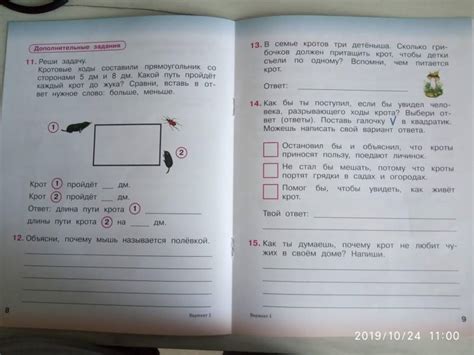 Дополнительные задания
11. Реши задачу.
Кротовые ходы составили прямоугольник со
сторонами 5 дм и 8 дм. Какой путь пройдёт
каждый крот до жука? Сравни, вставь в от-
вет нужное слово: больше, меньше.
1
2
Крот 1 пройдёт ___ дм.
Крот 2 пройдёт ___ дм.
Ответ: длина пути крота 1 ___
длины пути крота 2 на ___ дм.
12. Объясни, почему мышь называется полёвкой.
8
Вариант 1
13. В семье кротов три детёныша. Сколько гри-
бочков должен притащить крот, чтобы детки
съели по одному? Вспомни, чем питается
крот.
Ответ:
14. Как бы ты поступил, если бы увидел чело-
века, разрывающего ходы крота? Выбери от-
вет (ответы). Поставь галочку V в квадратик.
Можешь написать свой вариант ответа.
Остановил бы и объяснил, что кроты
приносят пользу, поедают личинок.
Не стал бы мешать, потому что кроты
портят грядки в садах и огородах.
Помог бы, чтобы увидеть, как живёт
крот.
Твой ответ:
15. Как ты думаешь, почему крот не любит чу-
жих в своём доме? Напиши.
Вариант 1
9
2019/10/24 11:00